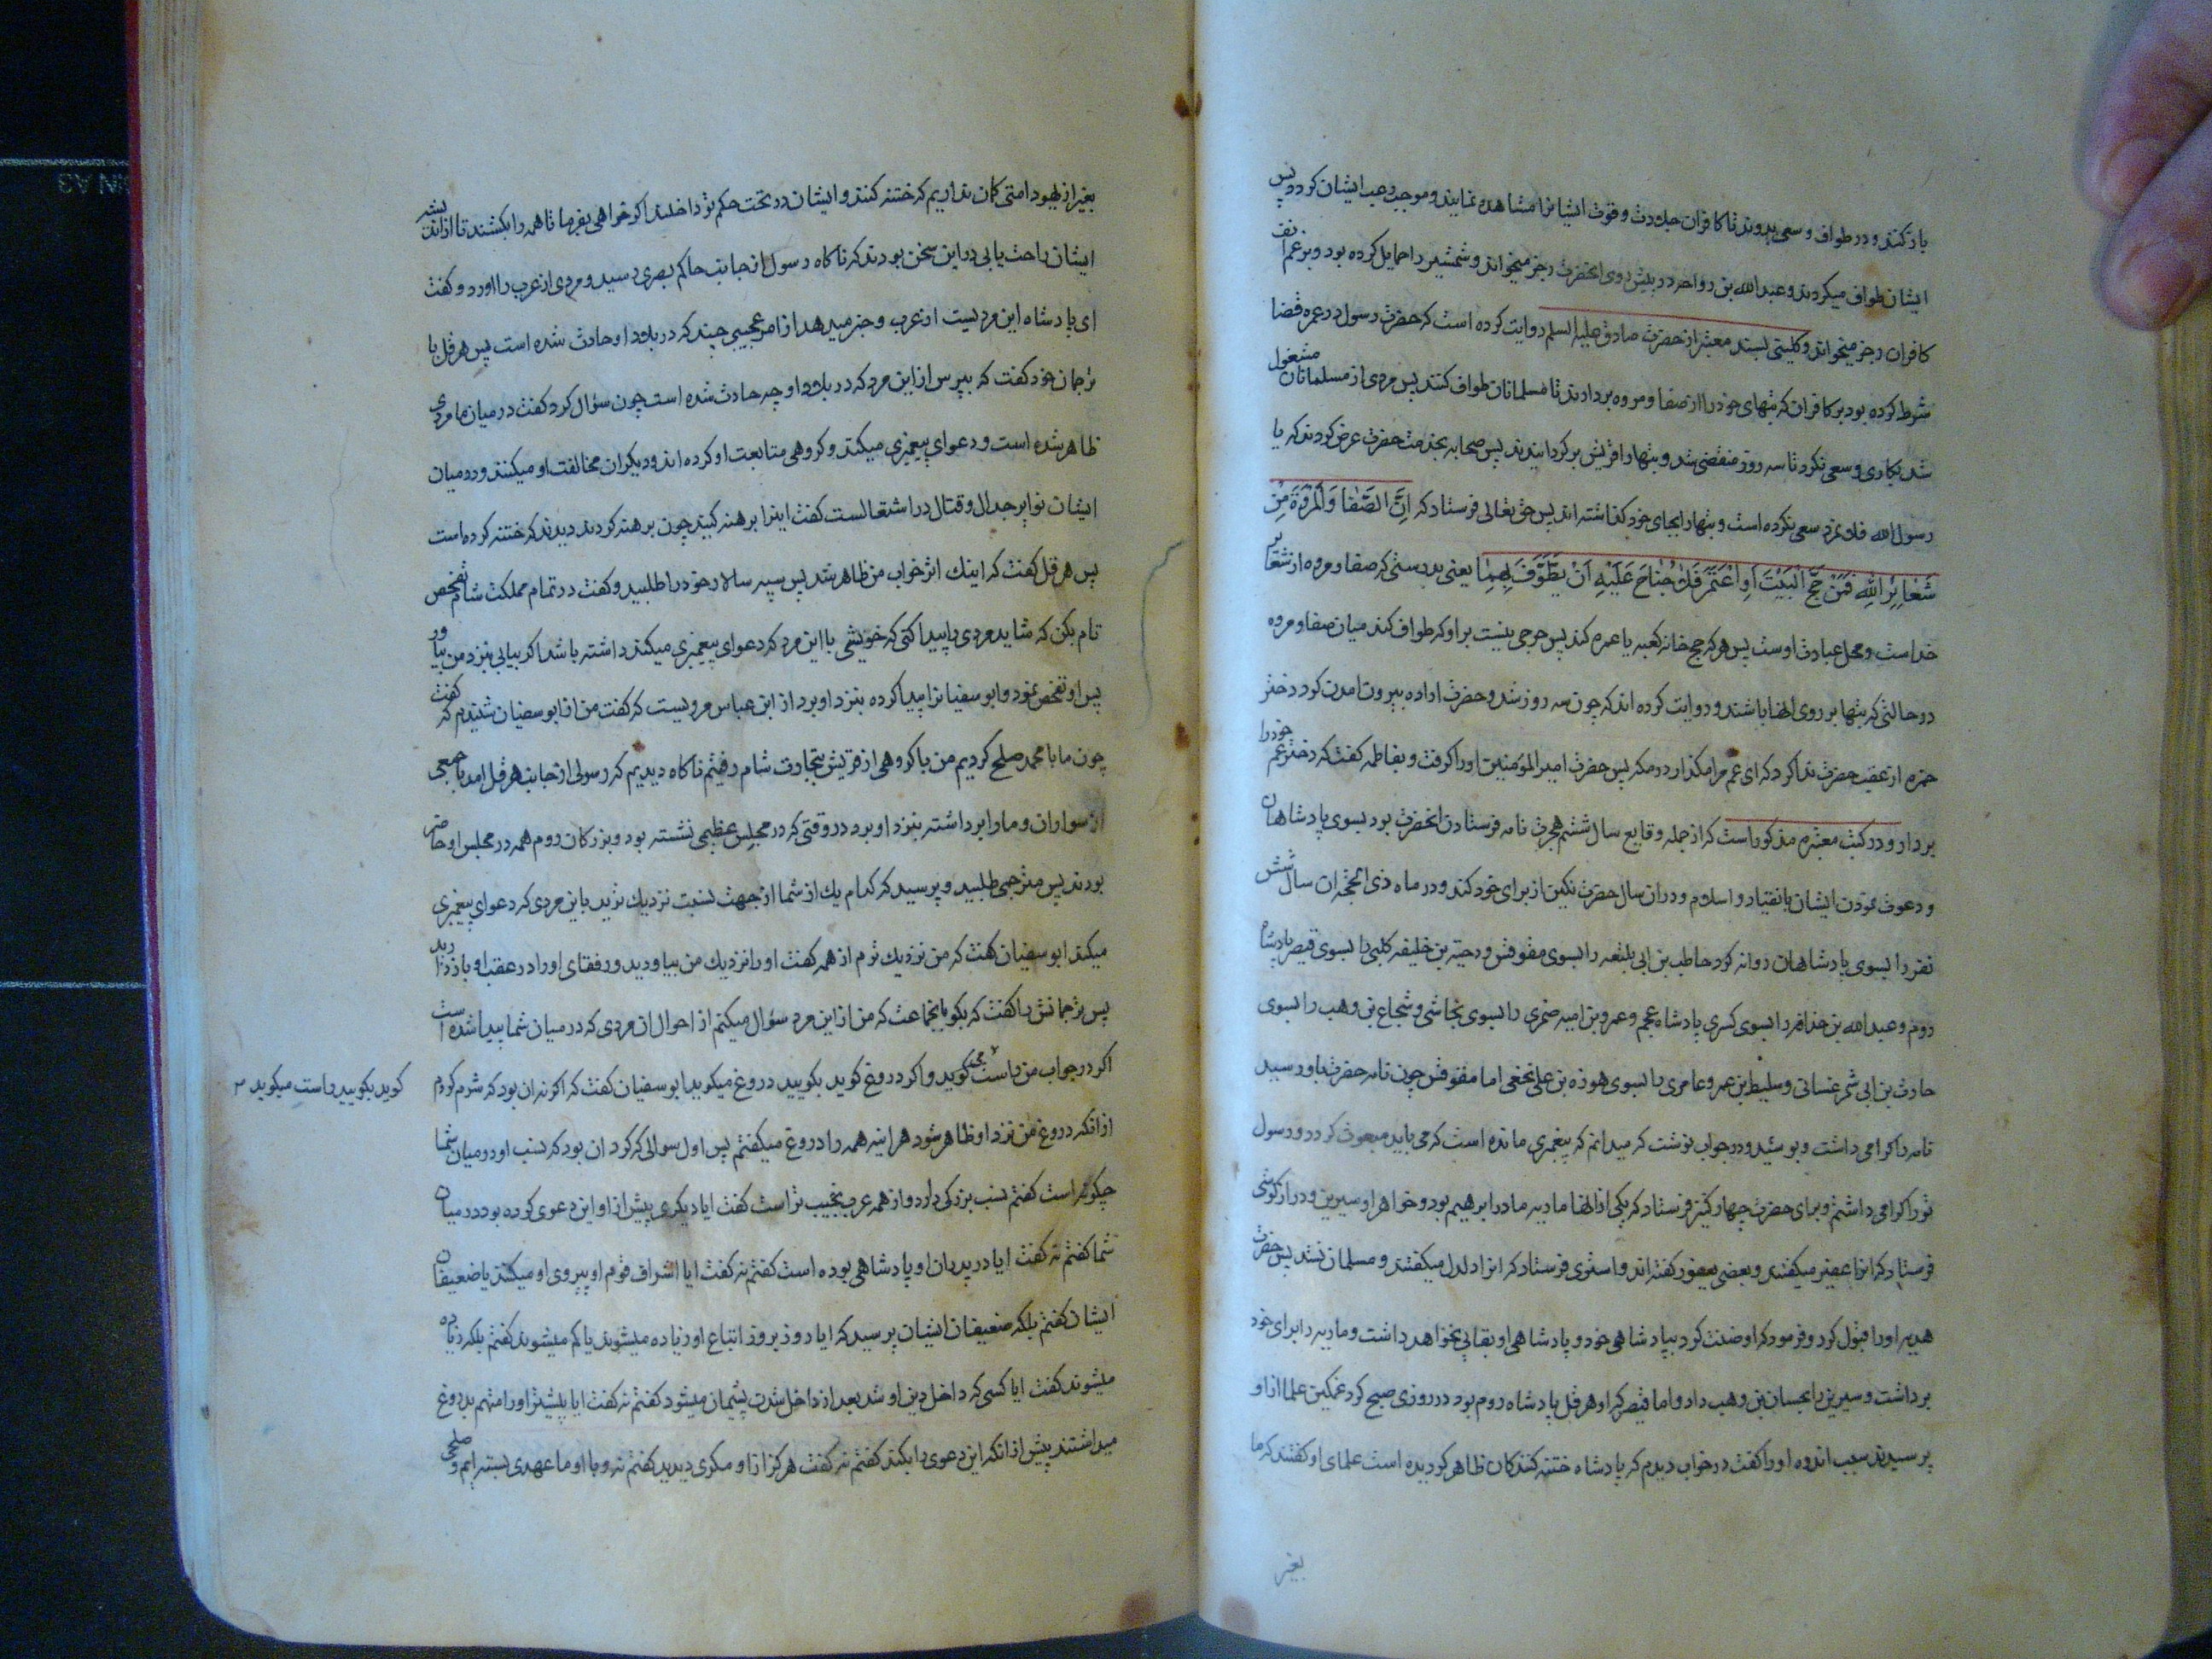 باز کنند و در طواف و سعی بدوند تا کافران جلادت و قوت ایشانرا مشاهده نمایند و موجب رعب ایشان کردد پس
ایشان طواف میکردند و عبدالله بن رواحه در پیش روی انحضرت رجز میخواند و شمشیر را حمایل کرده بود و بزعم انف
کافران رجز میخواند و کلینی بسند معتبر از حضرت صادق علیه السلم روایت کرده است که حضرت رسول در عمره قضا
شرط کرده بود بر کافران که بتهای خود را از صفا و مروه بردارند تا مسلمانان طواف کنند پس مردی از مسلمانان مشغول
شد بکاری و سعی نکرد تا سه روز منقضی شد و بتها را قریش بر کردانیدند پس صحابه بخدمت حضرت عرض کردند که یا
رسول الله فلان مرد سعی نکرده است و بتها را بجای خود کذاشته اند پس حق تعالی فرستاد که اِنَّ الصَّفٰا وَالْمَرْوَةَ مِنْ
شَعٰائِرِ اللّٰهِ فَمَنْ حَجَّ الْبَیْتَ اَوِ اعْتَمَرَ فَلٰا جُنٰاحَ عَلَیْهِ اَنْ یَطَّوَّفَ بِهِمٰا یعنی بدرستی که صفا و مروه از شعایر
خداست و محل عبادت اوست پس هر که حج خانه کعبه یا عمره کند پس حرجی نیست بر او که طواف کند میان صفا و مروه
در حالتی که بتها بر روی انها باشند و روایت کرده اند که چون سه روز شد و حضرت اراده بیرون امدن کرد دختر
حمزه از عقب حضرت ندا کرد که ای عم مرا مکذار در مکه پس حضرت امیر المؤمنین او را کرفت و بفاطمه کفت که دختر عم خود را
بردار و در کتب معتبره مذکور است که از جمله وقایع سال ششم هجرت نامه فرستادن انحضرت بود بسوی پادشاهان
و دعوت نمودن ایشان بانقیاد و اسلام و در ان سال حضرت نکین از برای خود کند و در ماه ذی الحجه ان سال شش
نفر را بسوی پادشاهان روانه کرد حاطب بن ابی بلتعه را بسوی مقوقس و دحیة بن خلیفه کلبی را بسوی قیصر پادشاه
روم و عبدالله بن حذافه را بسوی کسری پادشاه عجم و عمرو بن امیه ضمری را بسوی نجاشی و شجاع بن وهب را بسوی
حارث بن ابی شمر غسانی و سلیط بن عمرو عامری را بسوی هوذه بن علی نخعی اما مقوقس چون نامه حضرت باو رسید
نامه را کرامی داشت و بوسید و در جواب نوشت که میدانم که پیغمبری مانده است که می باید مبعوث کردد و رسول
تو را کرامی داشتم و برای حضرت چهار کنیز فرستاد که یکی از انها ماریه مادر ابرهیم بود و خواهر او سیرین و دراز کوشی
فرستاد که انرا عفیر میکفتند و بعضی یعفور کفته اند و استری فرستاد که انرا دلدل میکفتند و مسلمان نشد پس حضرت
هدیه او را قبول کرد و فرمود که او ضنت کرد بپادشاهی خود و پادشاهی او بقایی نخواهد داشت و ماریه را برای خود
برداشت و سیرین را بحسان بن وهب داد و اما قیصر که او هرقل پادشاه روم بود در روزی صبح کرد غمکین علما از او
پرسیدند سبب اندوه او را کفت در خواب دیدم که پادشاه ختنه کنندکان ظاهر کردیده است علمای او کفتند که ما
بغیر
بغیر از یهود امتی کمان نداریم که ختنه کنند و ایشان در تحت حکم تو داخلند اکر خواهی بفرما تا همه را بکشند تا از اندیشه
ایشان راحت یابی در این سخن بودند که ناکاه رسول از جانب حاکم بصری رسید و مردی از عرب را اورد و کفت
ای پادشاه این مردیست از عرب و خبر میدهد از امر عجیبی چند که در بلاد او حادث شده است پس هرقل با
ترجمان خود کفت که بپرس از این مرد که در بلاد او چه حادث شده است چون سؤال کرد کفت در میان ما مردی
ظاهر شده است و دعوای پیغمبری میکند و کروهی متابعت او کرده اند و دیکران مخالفت او میکنند و در میان
ایشان نوایر جدال و قتال در اشتعالست کفت اینرا برهنه کنید چون برهنه کردند دیدند که ختنه کرده است
پس هرقل کفت که اینك اثر خواب من ظاهر شد پس سپه سالار خود را طلبید و کفت در تمام مملکت شام تفحص
تام بکن که شاید مردی را پیدا کنی که خویشی با این مرد که دعوای پیغمبری میکند داشته باشد اکر بیابی بنزد من بیاور
پس او تفحص نمود و ابو سفیانرا پیدا کرده بنزد او برد از ابن عباس مرویست که کفت من از ابو سفیان شنیدم که کفت
چون ما با محمد صلح کردیم من با کروهی از قریش بتجارت شام رفتم ناکاه دیدیم که رسولی از جانب هرقل امد با جمعی
از سواران و ما را برداشته بنزد او برد در وقتی که در مجلس عظیمی نشسته بود و بزرکان روم همه در مجلس او حاضر
بودند پس مترجمی طلبید و پرسید که کدام یك از شما از جهت نسبت نزدیك ترید باین مردی که دعوای پیغمبری
میکند ابو سفیان کفت که من نزدیك ترم از همه کفت او را نزدیك من بیاورید و رفقای او را در عقب او بازدارید
پس ترجمانش را کفت که بکو باینجماعت که من از این مرد سؤال میکنم از احوال ان مردی که در میان شما پیدا شده است
اکر در جواب من راست می کوید و اکر دروغ کوید بکویید دروغ میکوید ابو سفیان کفت که اکر نه ان بود که شرم کردم
کوید بکویید راست میکوید
از انکه دروغ من نزد او ظاهر شود هر اینه همه را دروغ میکفتم پس اول سوالی که کرد ان بود که نسب او در میان شما
چکونه است کفتم نسب بزرکی دارد و از همه عرب نجیب تر است کفت ایا دیکری پیش از او این دعوی کرده بود در میان
شما کفتم نه کفت ایا در پدران او پادشاهی بوده است کفتم نه کفت ایا اشراف قوم او پیروی او میکنند یا ضعیفان
ایشان کفتم بلکه ضعیفان ایشان پرسید که ایا روز بروز اتباع او زیاده میشوند یا کم میشوند کفتم بلکه زیاده
میشوند کفت ایا کسی که داخل دین او شد بعد از داخل شدن پشیمان میشود کفتم نه کفت ایا پیشتر او را متهم بدروغ
میداشتند پیش از انکه این دعوی را بکند کفتم نه کفت هرکز از او مکری دیدید کفتم نه و با او ما عهدی بسته ایم و صلحی